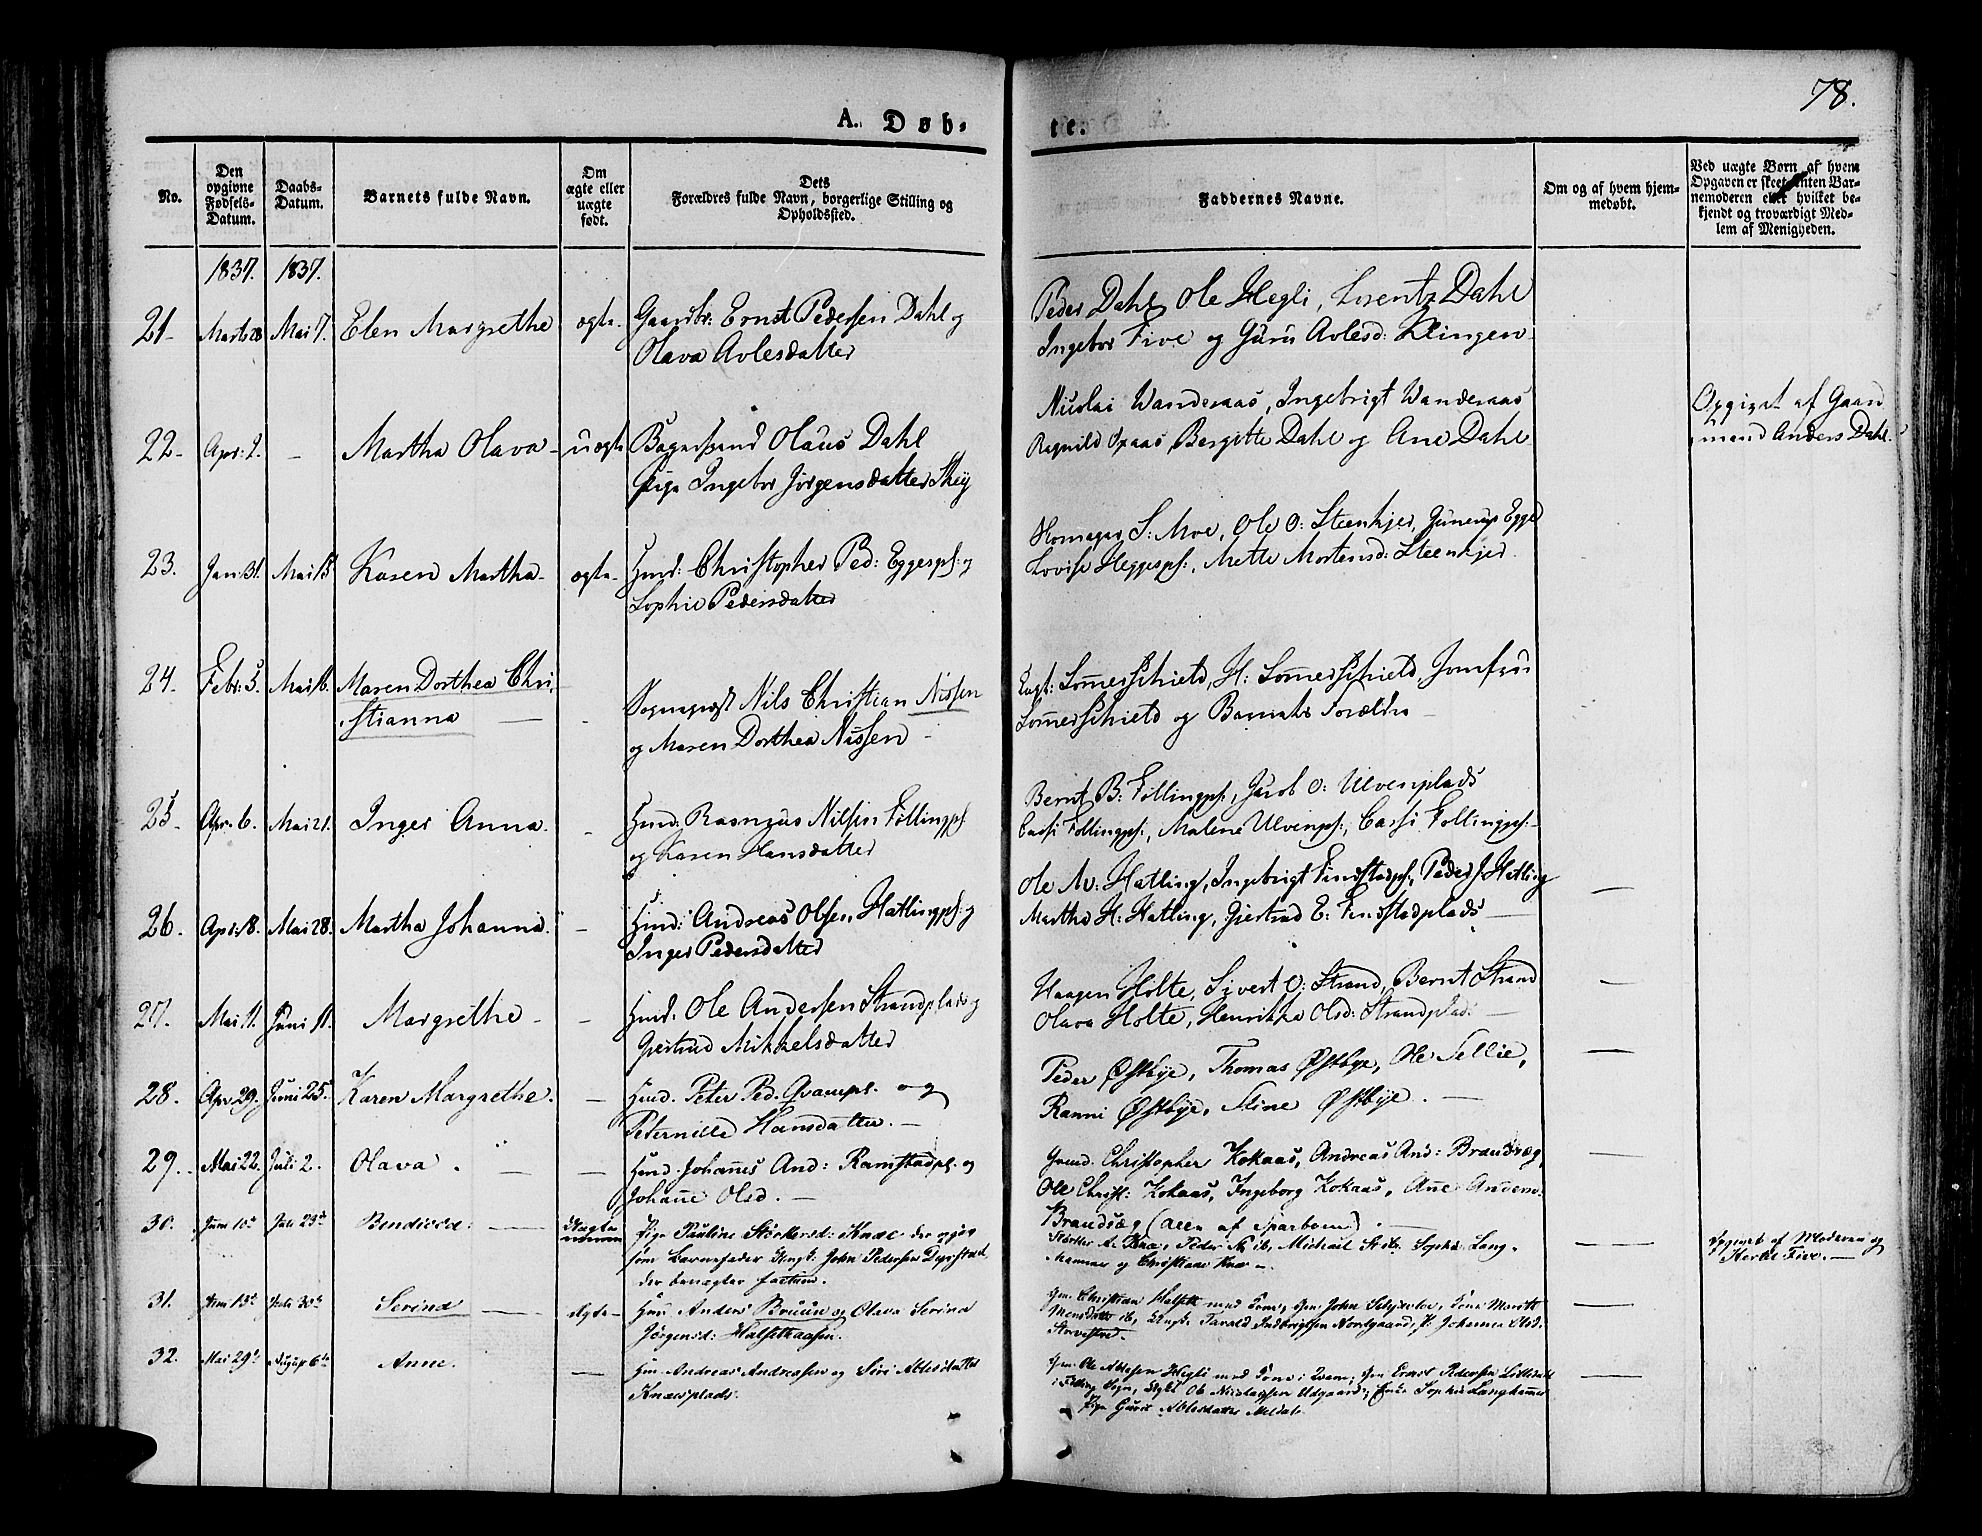 78.
A. Døb-
te.
No.
Den
opgivne
Fødsels-
Datum.
Daabs-
Datum.
Barnets fulde Navn.
Om
ægte eller
uægte
født.
Dets
Forældres fulde Navn, borgerlige Stilling og
Opholdssted.
Faddernes Navne.
Om og af hvem hjem-
medøbt.
Ved uægte Børn af hvem
Opgaven er skeet, enten Bar-
nemoderen eller hvilket be-
kjendt og troværdigt Med-
lem af Menigheden.
1837. 1837.
21. Marts 28 Mai 7. Elen Margrethe ægte. Gaardbr: Ernst Pedersen Dahl og
Olava Avlesdatter
Peder Dahl, Ole Hegli, Lorentz Dahl
Ingebor Five og Guru Avlesd: Klingen
22. Apr: 2. - Martha Olava uægte Olaus Dahl
Pige Ingebor Jörgensdatter Skey
Nicolai Wanderaas, Ingebrigt Wanderaas
Ragnild Oxaas, Bergitte Dahl og Ane Dahl
Opgivet af Gaard
mand Anders Dahl.
23. Jan: 31. Mai 15 Karen Martha ægte. Huusm: Christopher Ped: Eggespl: og
Sophie Pedersdatter
S: Moe, Ole O: Steenkjer, Egge
Lovise Heggespl:, Mette Mortensd: Steenkjer.
24. Febr: 5. Mai 16. Maren Dorthea Chri-
stianna - Sognepræst Nils Christian Nissen
og Maren Dorthea Nissen -
Capt: Sommerschield, H: Sommerschield, Jomfru
Sommerschield og Barnets Forældre
25. Apr. 6. Mai 21. Inger Anna. - Huusm: Rasmus NilsenFöllingpl:
og Karen Hansdatter
Bernt B: Föllingpl:, Jacob O: Ulvenplads
Föllingpl:, Malene Ulvenpl:, Föllingpl:
26. Apr: 18. Mai 28. Martha Johanna. - Huusm: Andreas Olsen Hatlingpl: og
Inger Pedersdatter
Ole M: Hatling, Ingebrigt Findstadpl:, Peder J. Hatling
Martha H: Hatling, Giertrud E: Findstadplads
27. Mai 11. Juni 11. Margrethe - Huusm: Ole Andersen Strandplads og
Gjertrud Mikkelsdatter
Haagen Holte, Sivert O: Strand, Bernt Strand
Olava Holte, Henrikka Olsd: Strandplads
28. Apr 29. Juni 25. Karen Margrethe. - Huusm. Peter Ped. Qvampl. og
Peternille Hansdatter. -
Peder Østbye, Thomas Østbye, Ole Sellie,
Ranni Østbye, Stine Østbye.
29. Mai 22. Juli 2. Olava. - Huusm. Johannes And: Ramstadpl. og
Johanne Olsd. -
Gmd. Christopher Kokaas, Andreas And: Brandsæg,
Ole Christ: Kokaas, Ingeborg Kokaas, Anne Andersd.
Brandsæg (alle af Sparboen).
30. Juni 10de Juli 23de Bendicta: Uægte
Pige Pauline Störkersd: Knæe der opgiv
som Barnefader Ungk: John Pedersen
der benægter factum.
Störker A. Knæ, Peder N. ib., Michael ib. Sophie Lang-
hammer og Christiane Knæ -.
Opgivet af Moderen og
Five. -
31. Juni 13de Juli 30te Serina Ægte Huusm Anders Bruun og Olava Serina
Jörgensd: Halsethaasen.
Gm. Christian Halseth med Kone, Gm. John
ib, Ungk. Tarald Indbrigtsen Nordgaard, P. Johanna Olsd.
32. Mai 29de August 6te Anne. - Huusm Andreas Andreasen og Siri Ablesdatter
Knæesplads.
Gm. Ole Ablesen Hegli med Kone i Qvam, Gm Ernst Pedersen
i Følling Sogn, Ungk. Ole Nicolaysen Udgaard, Enke Sophie Langhammer
Pige Guru Ablesdatter